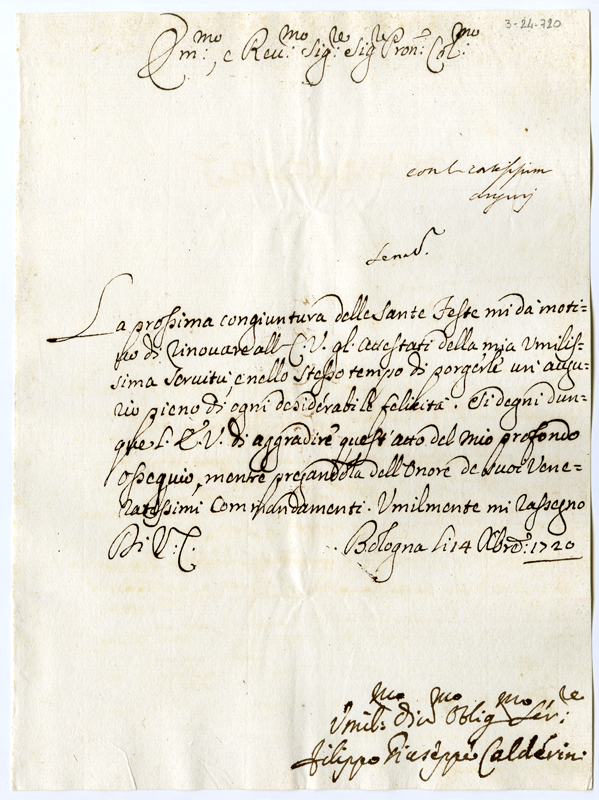 3-24-720
Em:mo, e Reu:mo Sig:re Sig:re Pron: Col:mo
con l
La prossima congiuntura delle Sante Feste mi dà moti=
uo di rinouare all E.V. gl' attestati della mia Vmilis=
sima Seruitù, e nello stesso tempo di porgerle un' augu=
rio pieno di ogni desiderabile felicità. Si degni dun=
que L' E.V. di aggradire quest' atto del mio profondo
osseguio, mentre pregandola dell' Onore de suoi Vene=
ratissimi Commandamenti. Vmilmente mi rassegno
Di V: E. Bologna li 14 Xbre: 1720
Vmil:mo Diu:mo Oblig:mo Ser:re
Filippo Giuseppe Calderin: